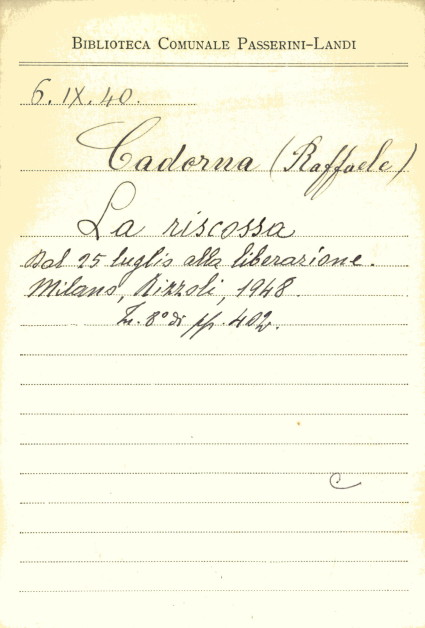 BIBLIOTECA COMUNALE PASSERINI-LANDI
6.IX.40.
Cadorna (Raffaele)
La riscossa
Dal 25 luglio alla liberazione.
Milano, Rizzoli, 1948.
In. 8° di pp. 402.
C